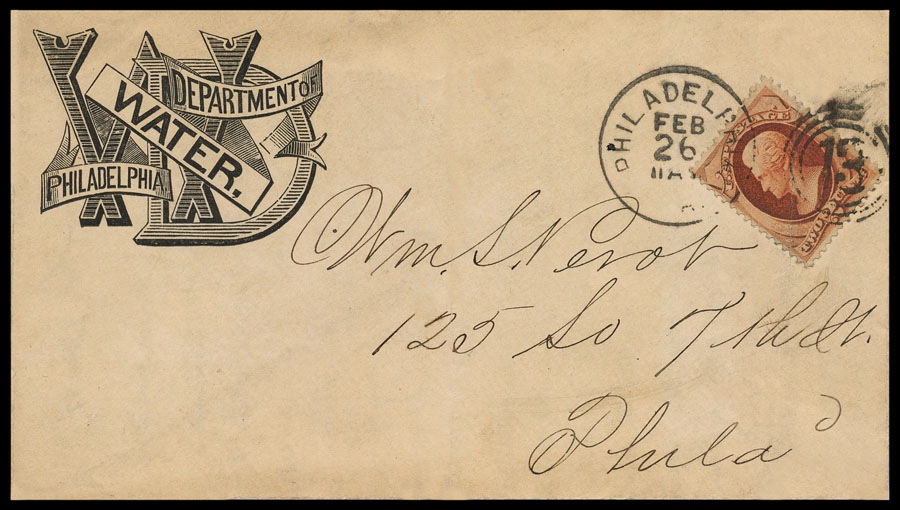 WD
DEPARTMENT OF
WATER.
PHILADELPHIA.
PHILADELP
FEB
26
11A
POSTAGE
Wm. S. Perot
125 So 7th St.
Phila